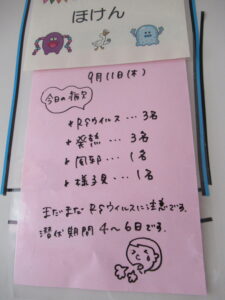 ほけん
9月11日(木)
今日の病欠
*RSウイルス … 3名
*発熱 … 3名
*風邪 … 1名
*様子見 … 1名
まだまだ RSウイルスに注意です。
潜伏期間 4〜6日です。